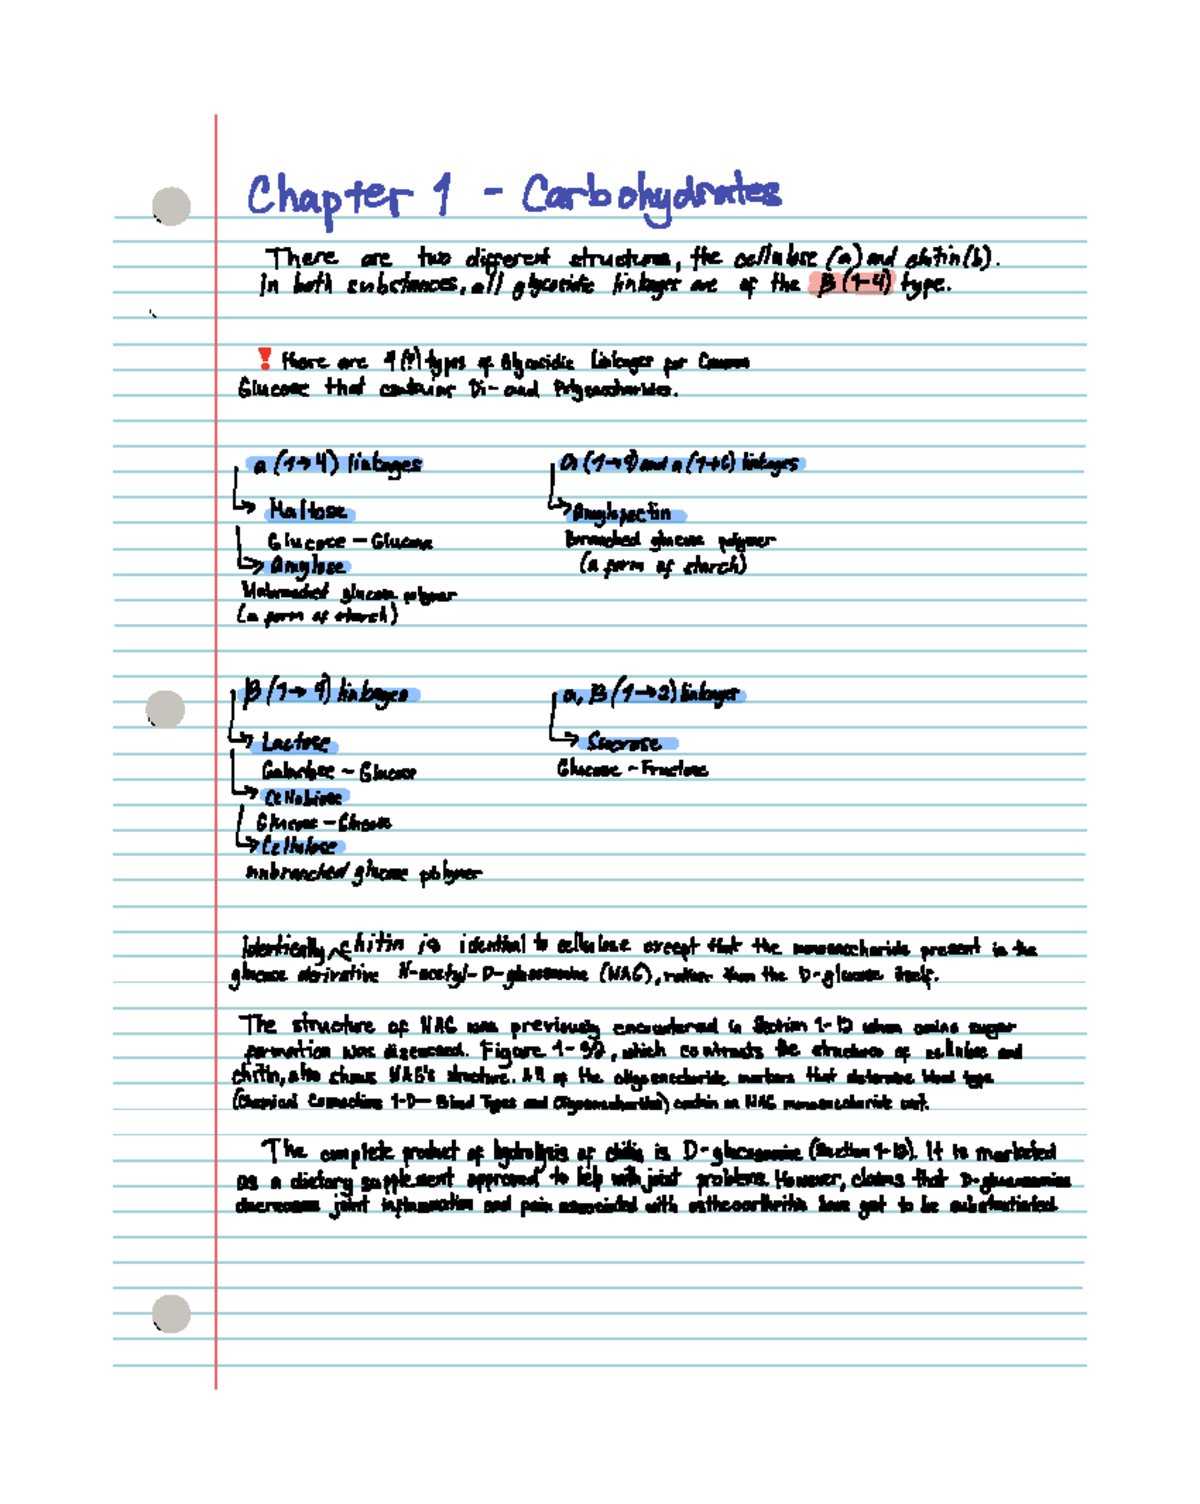 Chapter 1 - Carbohydrates
There are two different structures, the cellulose (a) and chitin (b).
In both substances, all glycosidic linkages are of the β (1→4) type.
! There are 4 (?) types of Glycosidic Linkages for Common
Glucose that contains Di- and Polysaccharides.
a (1→4) linkages
Maltose
Glucose - Glucose
Amylose
Unbranched glucose polymer
(a form of starch)
a (1→4) and a (1→6) linkages
Amylopectin
Branched glucose polymer
(a form of starch)
β (1→4) linkages
Lactose
Galactose - Glucose
Cellobiose
Glucose - Glucose
Cellulose
unbranched glucose polymer
a, β (1→2) linkages
Sucrose
Glucose - Fructose
Identically, chitin is identical to cellulose except that the monosaccharide present is the
glucose derivative N-acetyl-D-glucosamine (NAG), rather than the D-glucose itself.
The structure of NAG was previously encountered in Section 1-12 when amino sugar
formation was discussed. Figure 1-32, which contrasts the structures of cellulose and
chitin, also shows NAG's structure. All of the oligosaccharide markers that determine blood type
(Chemical Connections 1-D— Blood Types and Oligosaccharides) contain an NAG monosaccharide unit.
The complete product of hydrolysis of chitin is D-glucosamine (Section 1-12). It is marketed
as a dietary supplement approved to help with joint problems. However, claims that D-glucosamine
decreases joint inflammation and pain associated with osteoarthritis have yet to be substantiated.